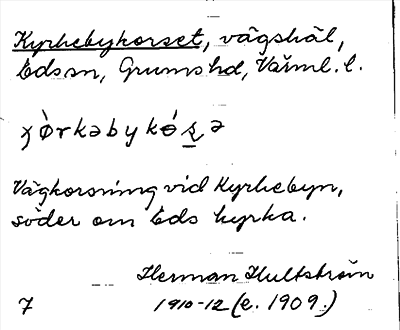 Kyrkebykorset, vägskäl,
Edssn, Grums hd, Värml. l.
Vägkorsning vid Kyrkebyn,
söder om Eds kyrka.
Herman Hultström
7 1910-12 (e. 1909.)